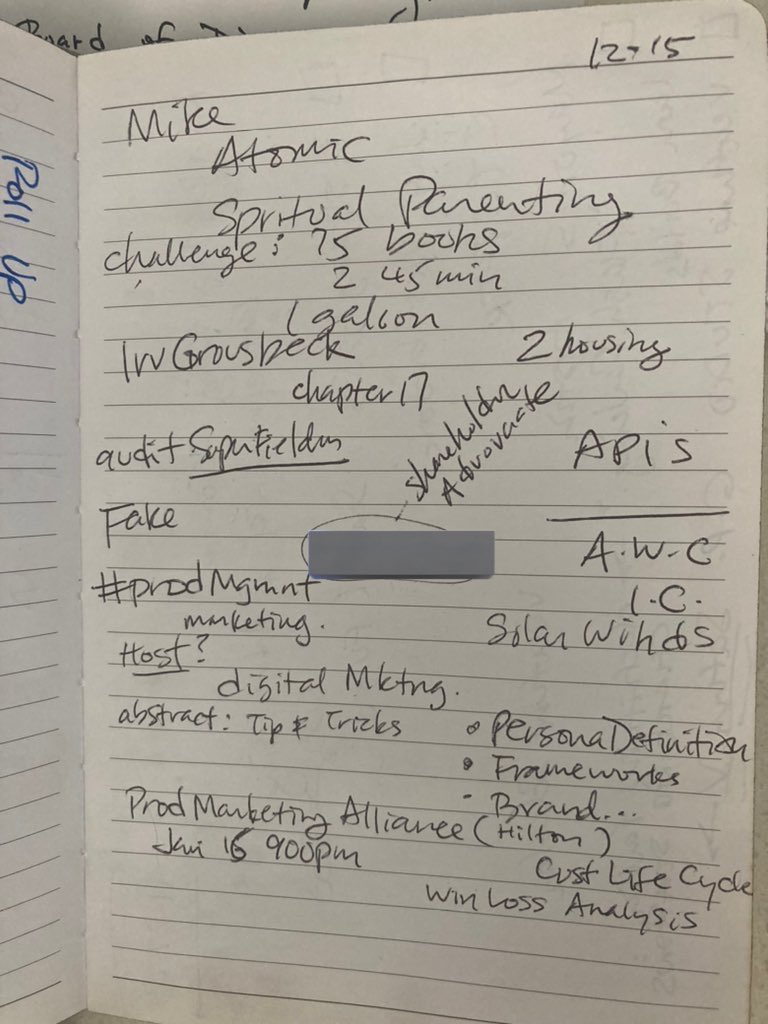 Board of
Roll Up
12-15
Mike
Atomic
Spritual Parenting
challenge: 75 books
2 45 min
1 gallon
Irv Grousbeck
2 housing
chapter 17
shareholder
Advovacate
audit
APIs
Fake
A.W.C
#prodMgmnt
I.C.
marketing.
Solar Winds
Host?
digital Mktng.
abstract: Tip & Tricks
• Persona Definition
• Frameworks
- Brand...
Prod Marketing Alliance (Hilton)
Jan 16 900pm
Cust Life Cycle
Win Loss Analysis